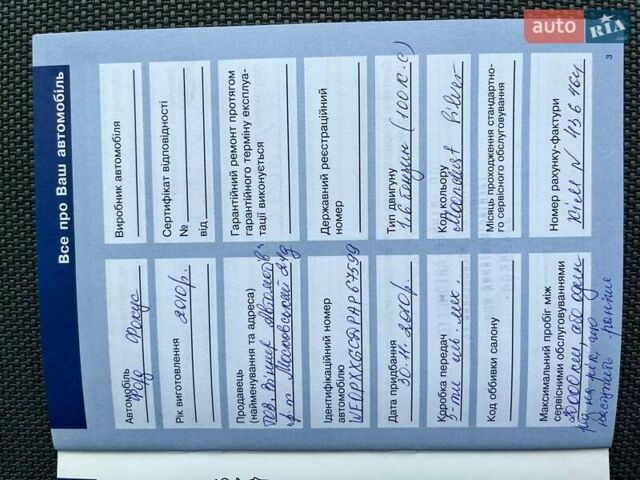 auto RIA
Все про Ваш автомобіль
Автомобіль
Форд Фокус
Рік виготовлення 2010р.
Продавець
(найменування та адреса)
Ідентифікаційний номер
автомобілю
Дата придбання
30.11.2010р.
Коробка передач
5-ти
Код оббивки салону
Максимальний пробіг між
сервісними обслуговуваннями
20000 км, або один
раз на рік, що
Виробник автомобіля
Сертифікат відповідності
№
від
Гарантійний ремонт протягом
гарантійного терміну експлуа-
тації виконується
Державний реєстраційний
номер
Тип двигуну
1.6 бензин (100 к.с)
Код кольору
Moondust Silver
Місяць проходження стандартно-
го сервісного обслуговування
Номер рахунку-фактури
3